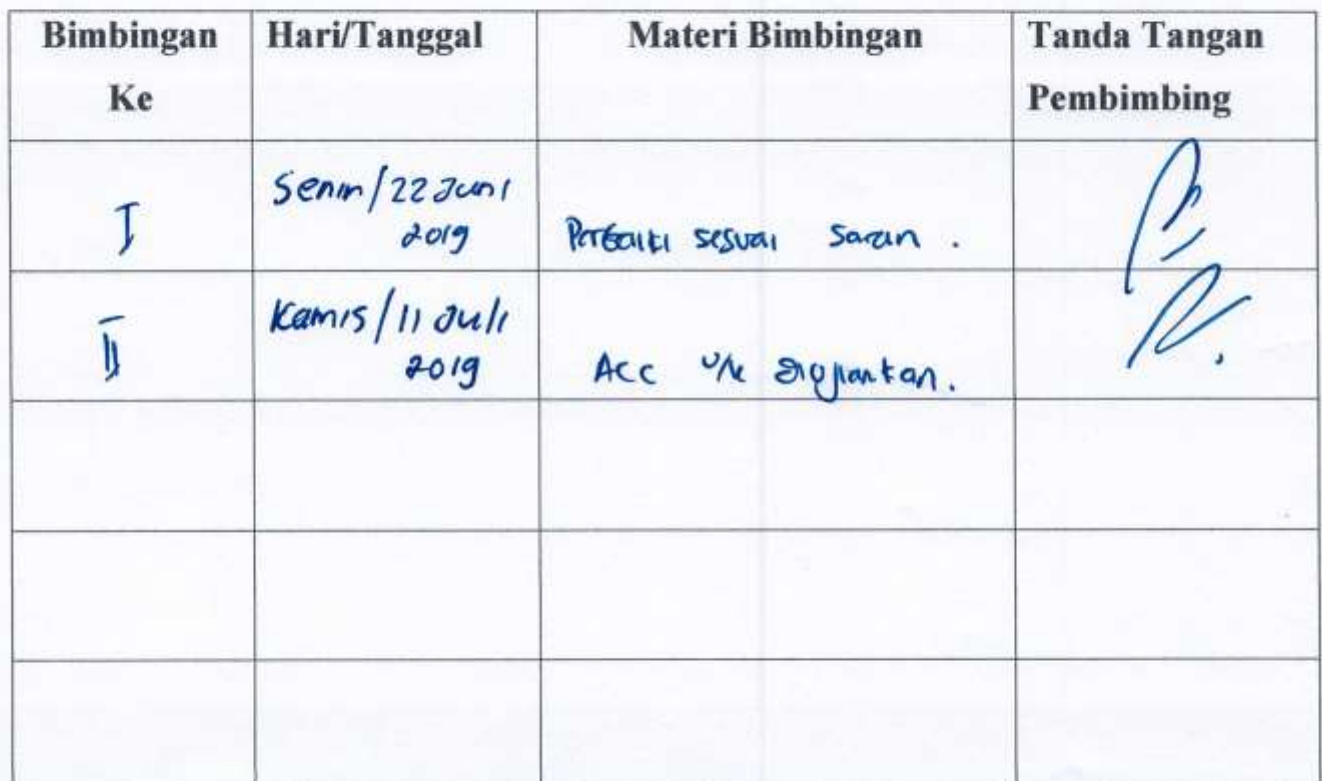 Bimbingan Ke
Hari/Tanggal
Materi Bimbingan
Tanda Tangan Pembimbing
I
Senin/22 Juni
2019
Perbaiki sesuai saran.
II
Kamis/11 Juli
2019
Acc u/k diujiankan.